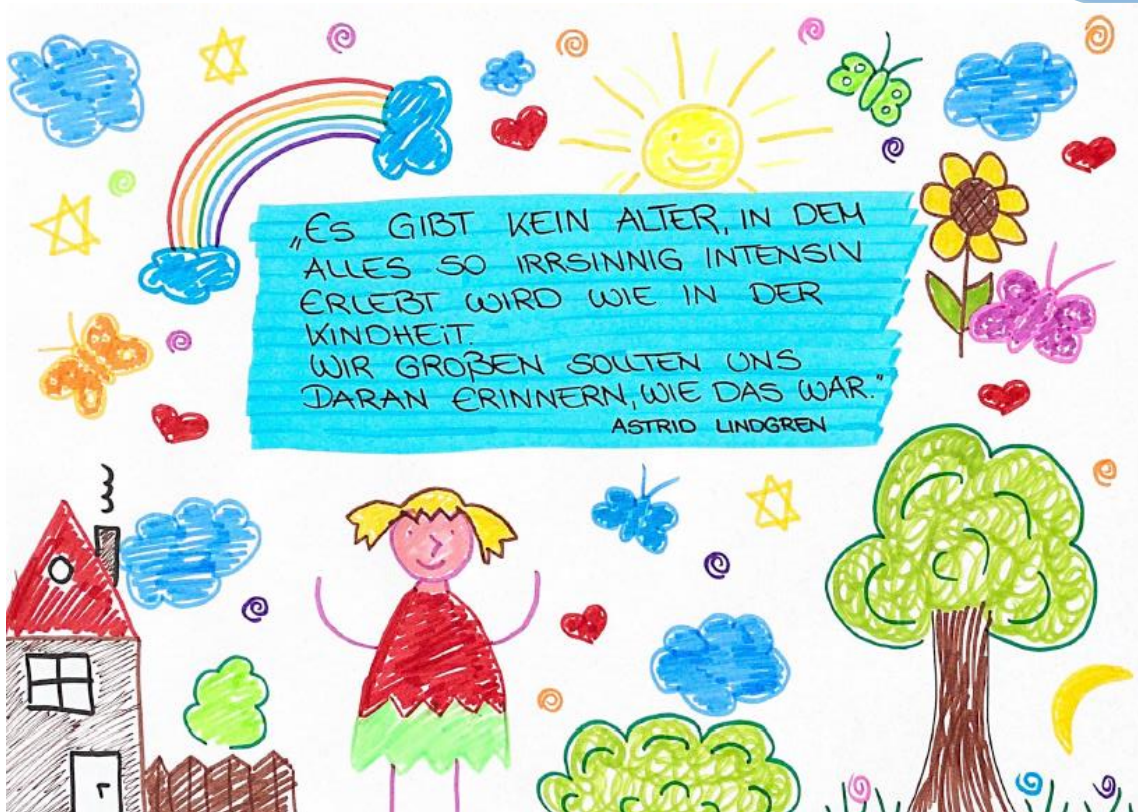 „ES GIBT KEIN ALTER, IN DEM
ALLES SO IRRSINNIG INTENSIV
ERLEBT WIRD WIE IN DER
KINDHEIT.
WIR GROßEN SOLLTEN UNS
DARAN ERINNERN, WIE DAS WAR."
ASTRID LINDGREN